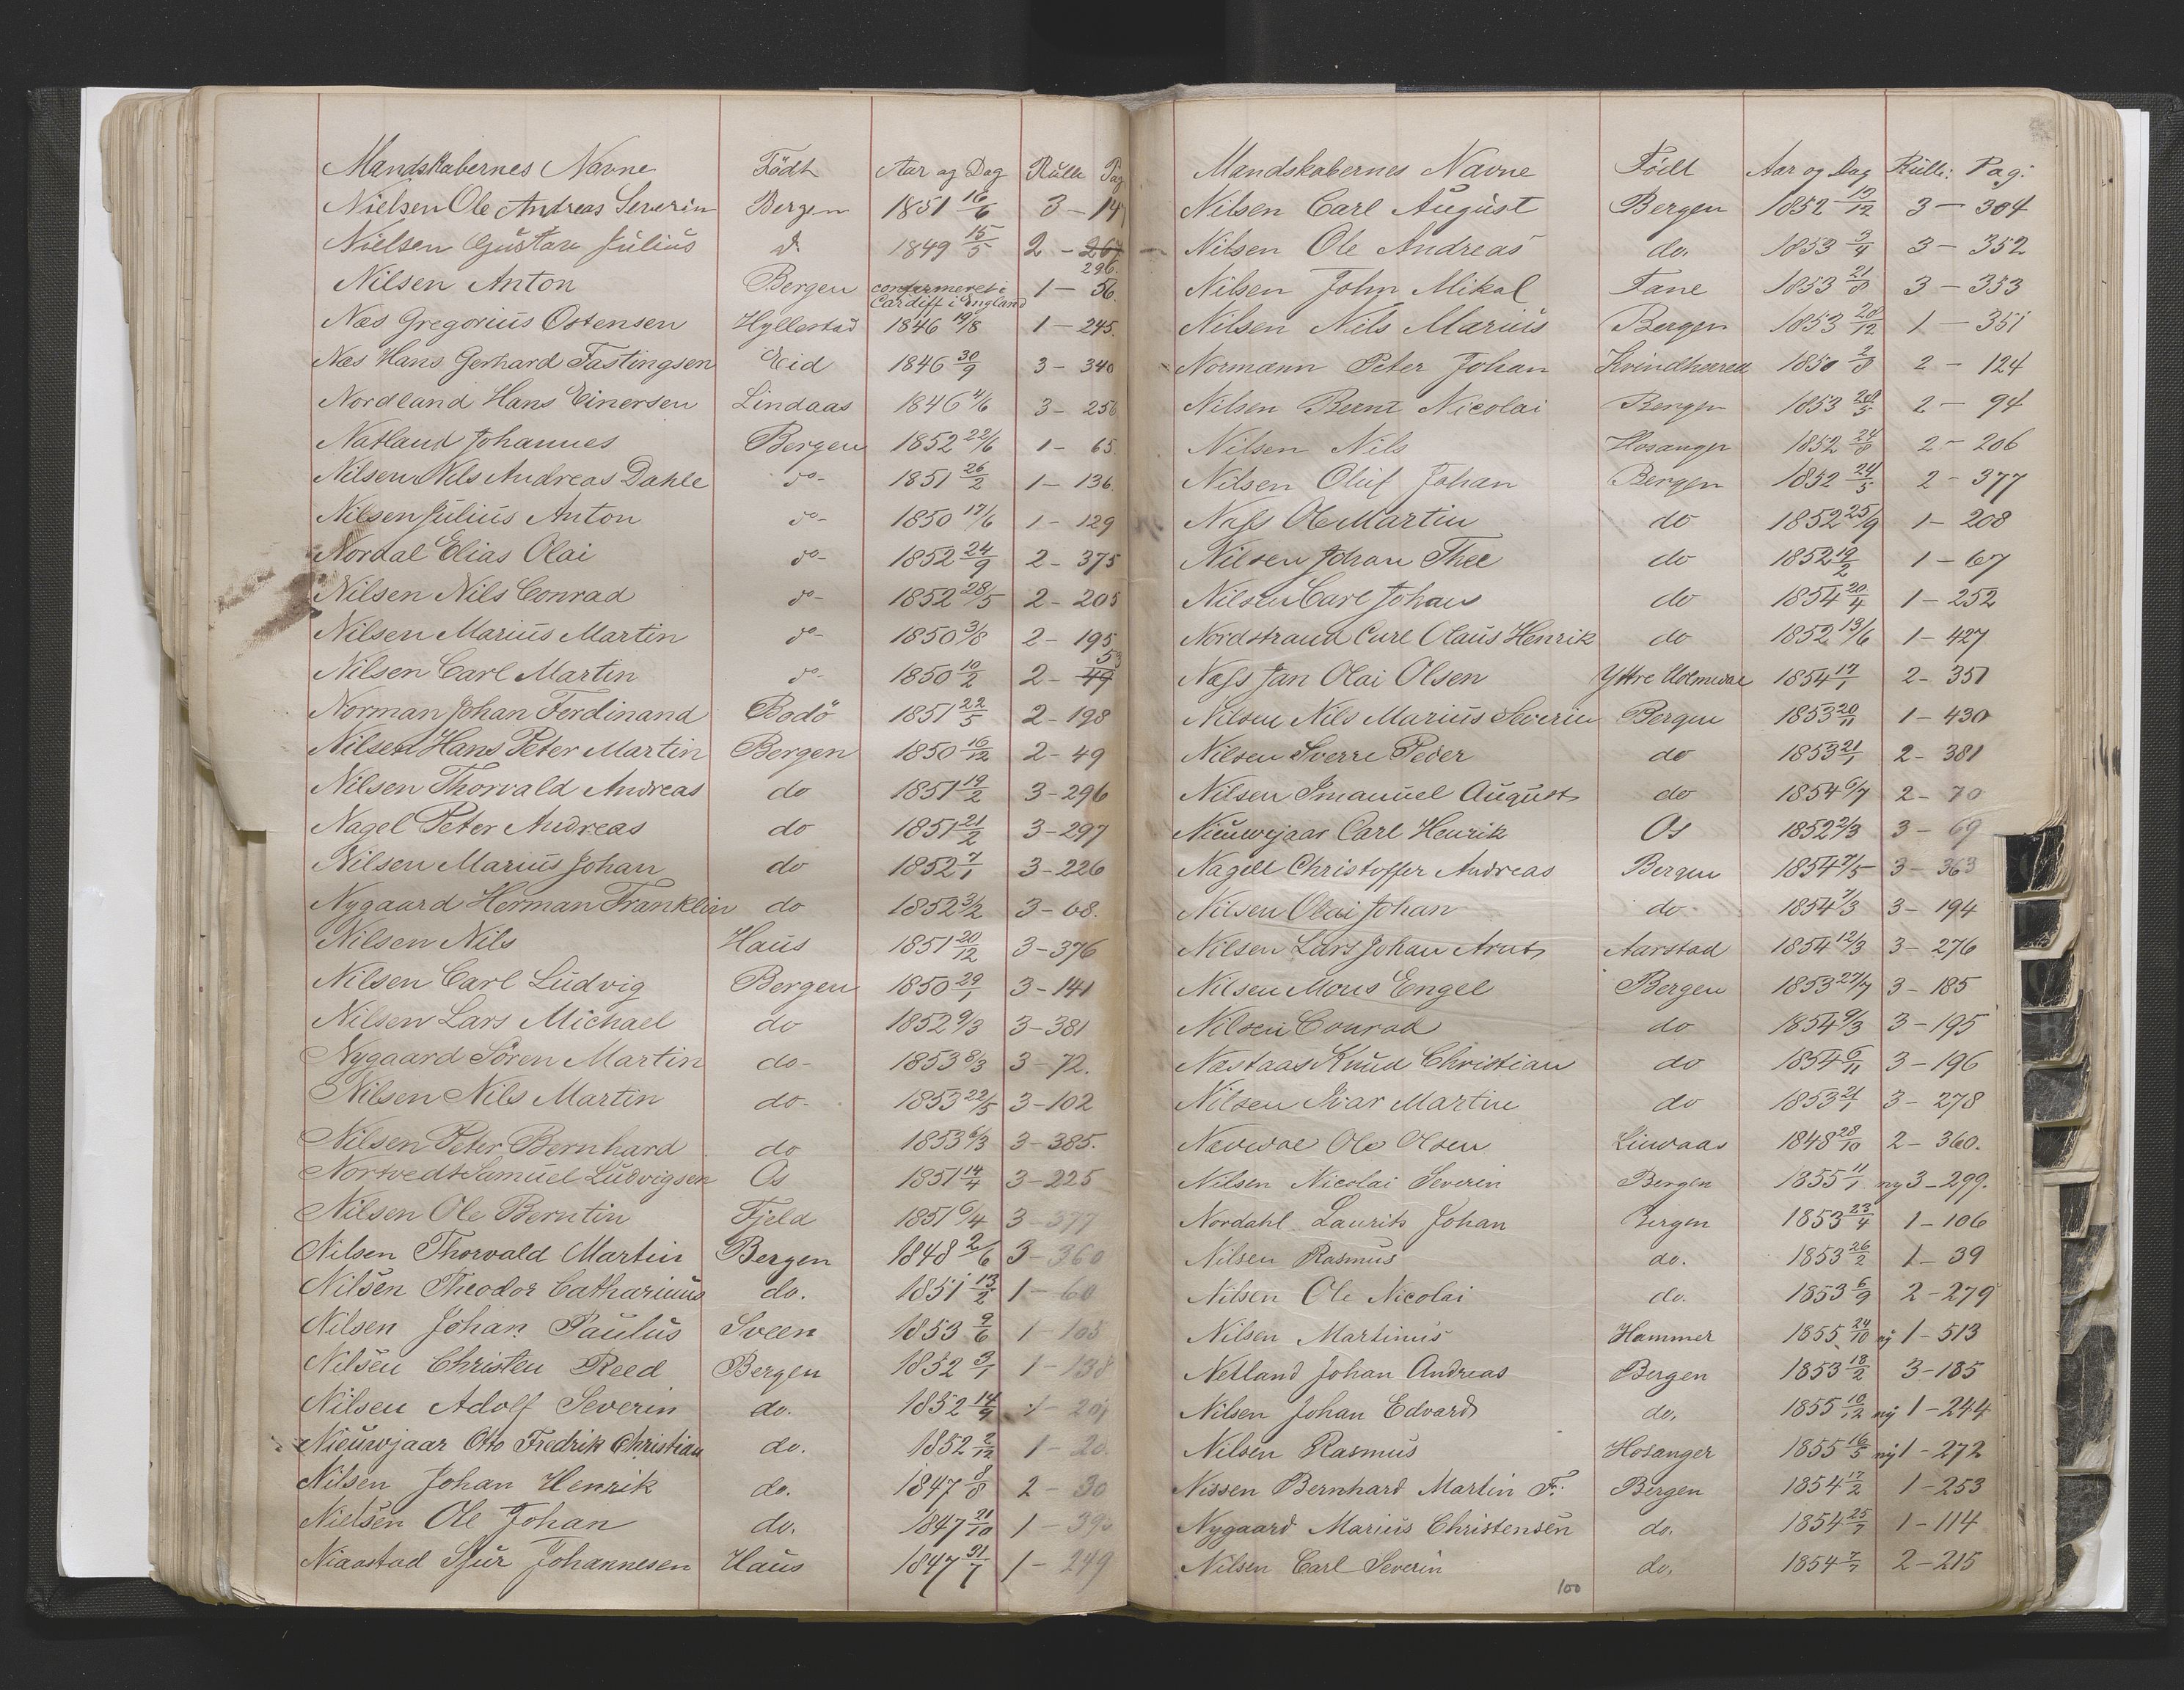 Mandskabernes Navne Födt Aar og Dag Rulle Pag
Nielsen Ole Andreas Severin Bergen 1851 16/6 3 - 14
Nielsen Gustav Julius d 1849 15/5 2 - 267 296.
Nilsen Anton Bergen confirmeret i Cardiff i England 1 - 56.
Næs Gregorius Ostensen Hyllestad 1846 19/8 1 - 245.
Næs Hans Gerhard Fastingsen Eid 1846 30/9 3 - 340
Nordland Hans Einersen Lindaas 1846 4/6 3 - 256
Natland Johannes Bergen 1852 22/6 1 - 65.
Nilsen Nils Andreas Dahle do- 1851 26/2 1 - 136.
Nilsen Julius Anton do- 1850 17/6 1 - 129
Nordal Elias Olai do- 1852 24/9 2 - 375
Nilsen Nils Conrad do- 1852 28/5 2 - 205
Nilsen Marius Martin do- 1850 3/8 2 - 195
Nilsen Carl Martin do- 1850 10/2 2 - 49 53
Norman Johan Ferdinand Bodö 1851 22/5 2 - 198
Nilsen Hans Peter Martin Bergen 1850 16/12 2 - 49
Nilsen Thorvald Andreas do 1851 19/2 3 - 296
Nagel Peter Andreas do 1851 21/2 3 - 297
Nilsen Marius Johan do 1852 7/1 3 - 226
Nygaard Herman Franklin do 1852 3/2 3 - 68.
Nilsen Nils Haus 1851 20/12 3 - 376
Nilsen Carl Ludvig Bergen 1850 29/1 3 - 141
Nilsen Lars Michael do 1852 9/3 3 - 381
Nygaard Sören Martin do- 1853 8/3 3 - 72.
Nilsen Nils Martin do- 1853 22/5 3 - 102
Nilsen Peter Bernhard do 1853 6/3 3 - 385.
Nortvedt Samuel Ludvigsen Os 1851 14/4 3 - 225
Nilsen Ole Berntin Fjeld 1851 6/4 3 - 377
Nilsen Thorvald Martin Bergen 1848 2/6 3 - 360
Nilsen Theodor Catharinus do. 1851 13/2 1 - 60
Nilsen Johan Paulus Sveen 1853 9/6 1 - 105
Nilsen Christen Reed Bergen 1852 3/1 1 - 138
Nilsen Adolf Severin do. 1852 14/9 1 - 20
Nieuwjaar Otto Fredrik Christian do. 1852 2/12 1 - 20.
Nilsen Johan Henrik do. 1847 8/8 2 - 30
Nielsen Ole Johan do. 1847 21/10 1 - 39
Niaastad Sjur Johannesen Haus 1847 31/7 1 - 249
Mandskabernes Navne Födt Aar og Dag Rulle: Pag:
Nilsen Carl August Bergen 1852 13/12 3 - 304
Nilsen Ole Andreas do. 1853 3/4 3 - 352
Nilsen John Mikal Fane 1853 21/8 3 - 353
Nilsen Nils Marius Bergen 1853 28/12 1 - 351
Normann Peter Johan Kvindherred 1850 2/8 2 - 124
Nilsen Bernt Nicolai Bergen 1853 28/5 2 - 94
Nilsen Nils Hosanger 1852 24/8 2 - 206
Nilsen Oluf Johan Bergen 1852 24/5 2 - 377
Næss Ole Martin do 1852 25/9 1 - 208
Nilsen Johan Thee do 1852 19/2 1 - 67
Nilsen Carl Johan do 1854 20/4 1 - 252
Nordstrand Carl Olaus Henrik do 1852 13/6 1 - 427
Næss Jan Olai Olsen Yttre Holmedal 1854 17/1 2 - 351
Nilsen Nils Marius Severin Bergen 1853 20/11 1 - 430
Nilsen Sverre Peder do 1853 21/1 2 - 381
Nilsen Imanuel August do 1854 6/7 2 - 70
Nieuwejaar Carl Henrik Os 1852 2/3 3 - 69
Nagell Christoffer Andreas Bergen 1854 7/5 3 - 363
Nilsen Olai Johan do- 1854 7/3 3 - 194
Nilsen Lars Johan Arnt Aarstad 1854 12/3 3 - 276
Nilsen Mons Engel Bergen 1853 27/7 3 - 185
Nilsen Conrad do 1854 9/3 3 - 195
Nastaas Knud Christian do 1854 6/11 3 - 196
Nilsen Ivar Martin do 1853 21/1 3 - 278
Nævdal Ole Olsen Lindaas 1848 28/10 2 - 360.
Nilsen Nicolai Severin Bergen 1855 11/1 ny 3 - 299.
Nordahl Laurits Johan Bergen 1853 23/4 1 - 106
Nilsen Rasmus do. 1853 26/2 1 - 39
Nilsen Ole Nicolai do. 1853 6/9 2 - 279
Nilsen Martinus Hammer 1855 24/10 ny 1 - 513
Netland Johan Andreas Bergen 1853 18/2 3 - 185
Nilsen Johan Edvard do. 1855 10/12 ny 1 - 244
Nilsen Rasmus Hosanger 1855 16/5 ny 1 - 272
Nissen Bernhard Martin F. Bergen 1854 17/2 1 - 253
Nygaard Marius Christensen do. 1854 25/7 1 - 114
Nilsen Carl Severin do. 1854 7/7 2 - 215
100